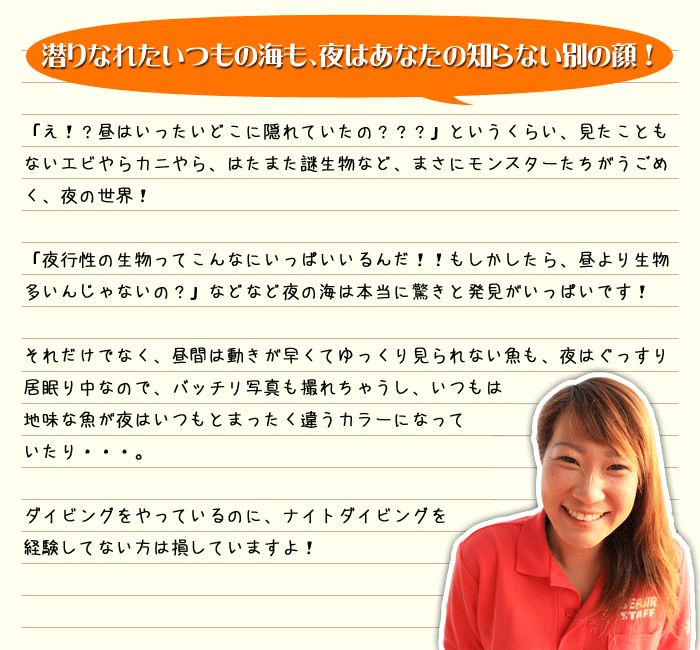 潜りなれたいつもの海も、夜はあなたの知らない別の顔！
「え！？昼はいったいどこに隠れていたの？？？」というくらい、見たことも
ないエビやらカニやら、はたまた謎生物など、まさにモンスターたちがうごめ
く、夜の世界！
「夜行性の生物ってこんなにいっぱいいるんだ！！もしかしたら、昼より生物
多いんじゃないの？」などなど夜の海は本当に驚きと発見がいっぱいです！
それだけでなく、昼間は動きが早くてゆっくり見られない魚も、夜はぐっすり
居眠り中なので、バッチリ写真も撮れちゃうし、いつもは
地味な魚が夜はいつもとまったく違うカラーになって
いたり・・・。
ダイビングをやっているのに、ナイトダイビングを
経験してない方は損していますよ！
STAFF